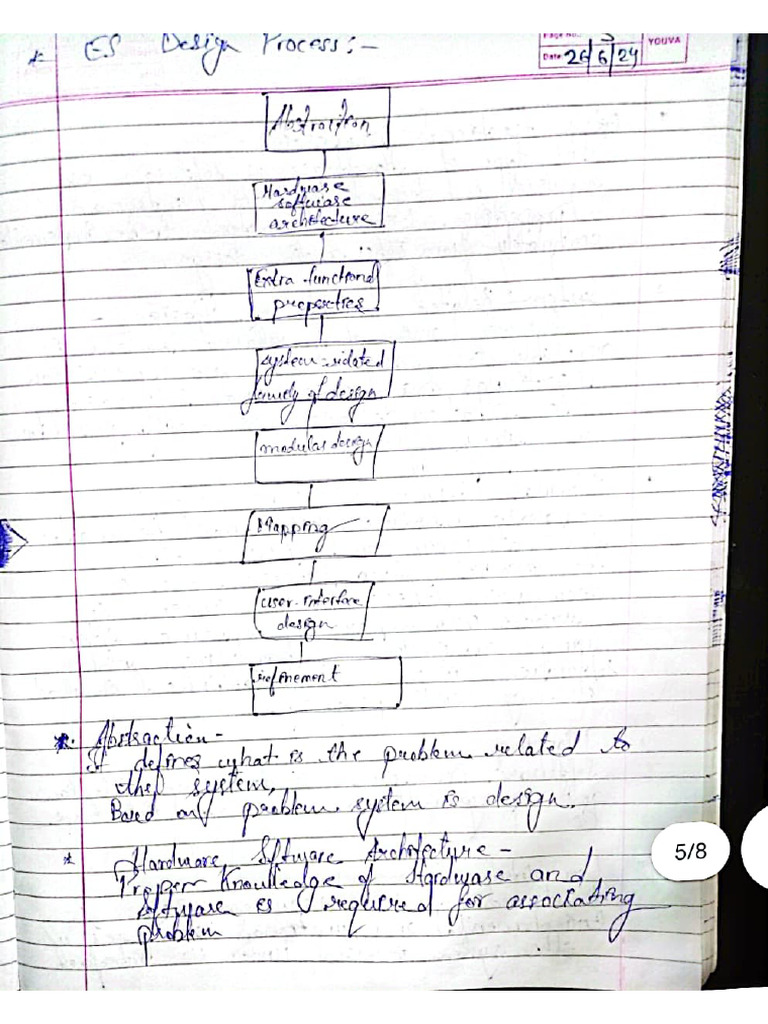 * ES Design Process:-
Page No.:
Date: 26/6/24
YOUVA
Abstraction
Hardware
software
architecture
Extra-functional
properties
system-related
family of design
modular design
Mapping
user-interface
design
refinement
* Abstraction-
It defines what is the problem related to
the system,
Based on problem system is design.
* Hardware, Software Architecture-
Proper Knowledge of Hardware and
software is required for associating
problem
5/8